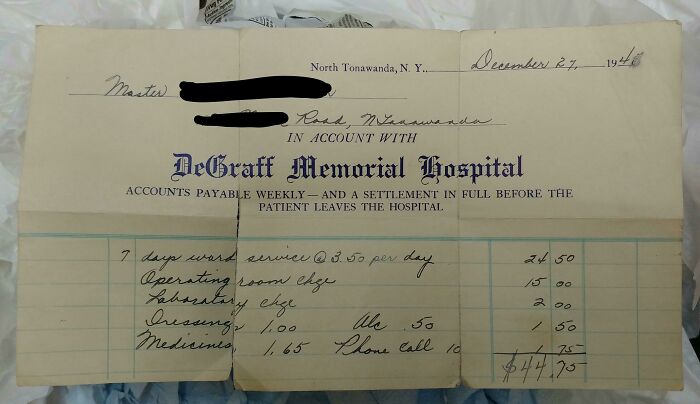 North Tonawanda, N. Y. December 27, 194
Master
Road, N Tonawanda
IN ACCOUNT WITH
DeGraff Memorial Hospital
ACCOUNTS PAYABLE WEEKLY — AND A SETTLEMENT IN FULL BEFORE THE
PATIENT LEAVES THE HOSPITAL
7 days ward service @ 3.50 per day 24 50
Operating room chge 15 00
Laboratory chge 2 00
Dressings 1.00 Alc .50 1 50
Medicines 1.65 Phone Call 10 1 75
$44.75